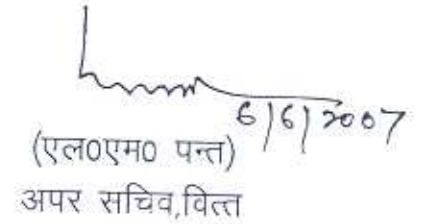 6/6/2007
(एल0एम0 पन्त)
अपर सचिव,वित्त